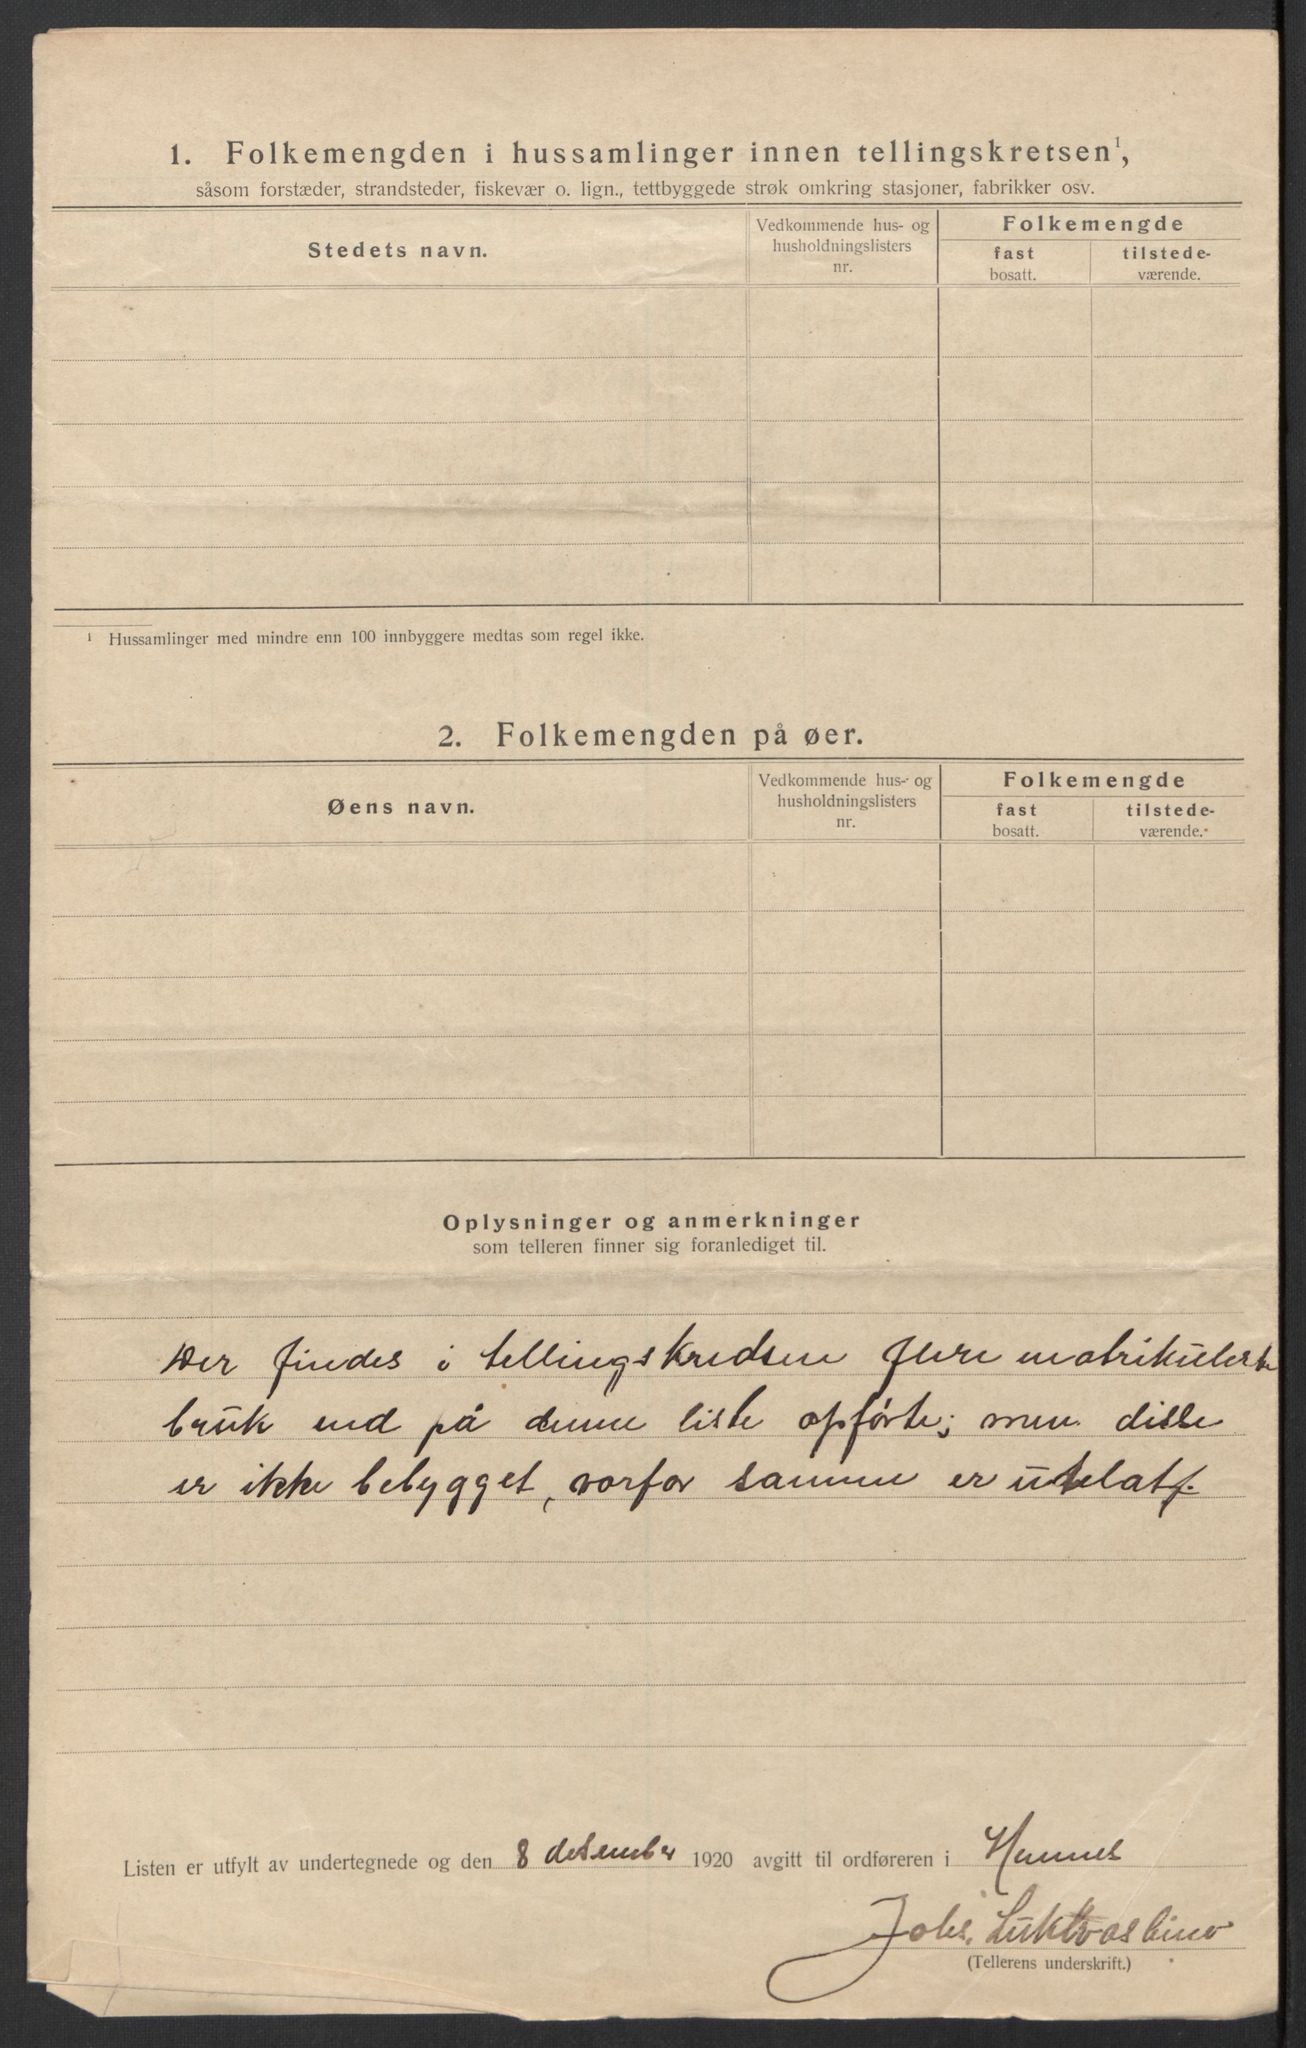 1. Folkemengden i hussamlinger innen tellingskretsen¹,
såsom forstæder, strandsteder, fiskevær o. lign., tettbyggede strøk omkring stasjoner, fabrikker osv.
Stedets navn.
Vedkommende hus- og
husholdningslisters
nr.
Folkemengde
fast
bosatt.
tilstede-
værende.
¹ Hussamlinger med mindre enn 100 innbyggere medtas som regel ikke.
2. Folkemengden på øer.
Øens navn.
Vedkommende hus- og
husholdningslisters
nr.
Folkemengde
fast
bosatt.
tilstede-
værende.
Oplysninger og anmerkninger
som telleren finner sig foranlediget til.
Der findes i tellingskredsen flere matrikulerte
bruk end på denne liste opførte; men disse
er ikke bebygget, vorfor samme er utelatt.
Listen er utfylt av undertegnede og den 8 desember 1920 avgitt til ordføreren i Hemnes
Johs.
(Tellerens underskrift.)